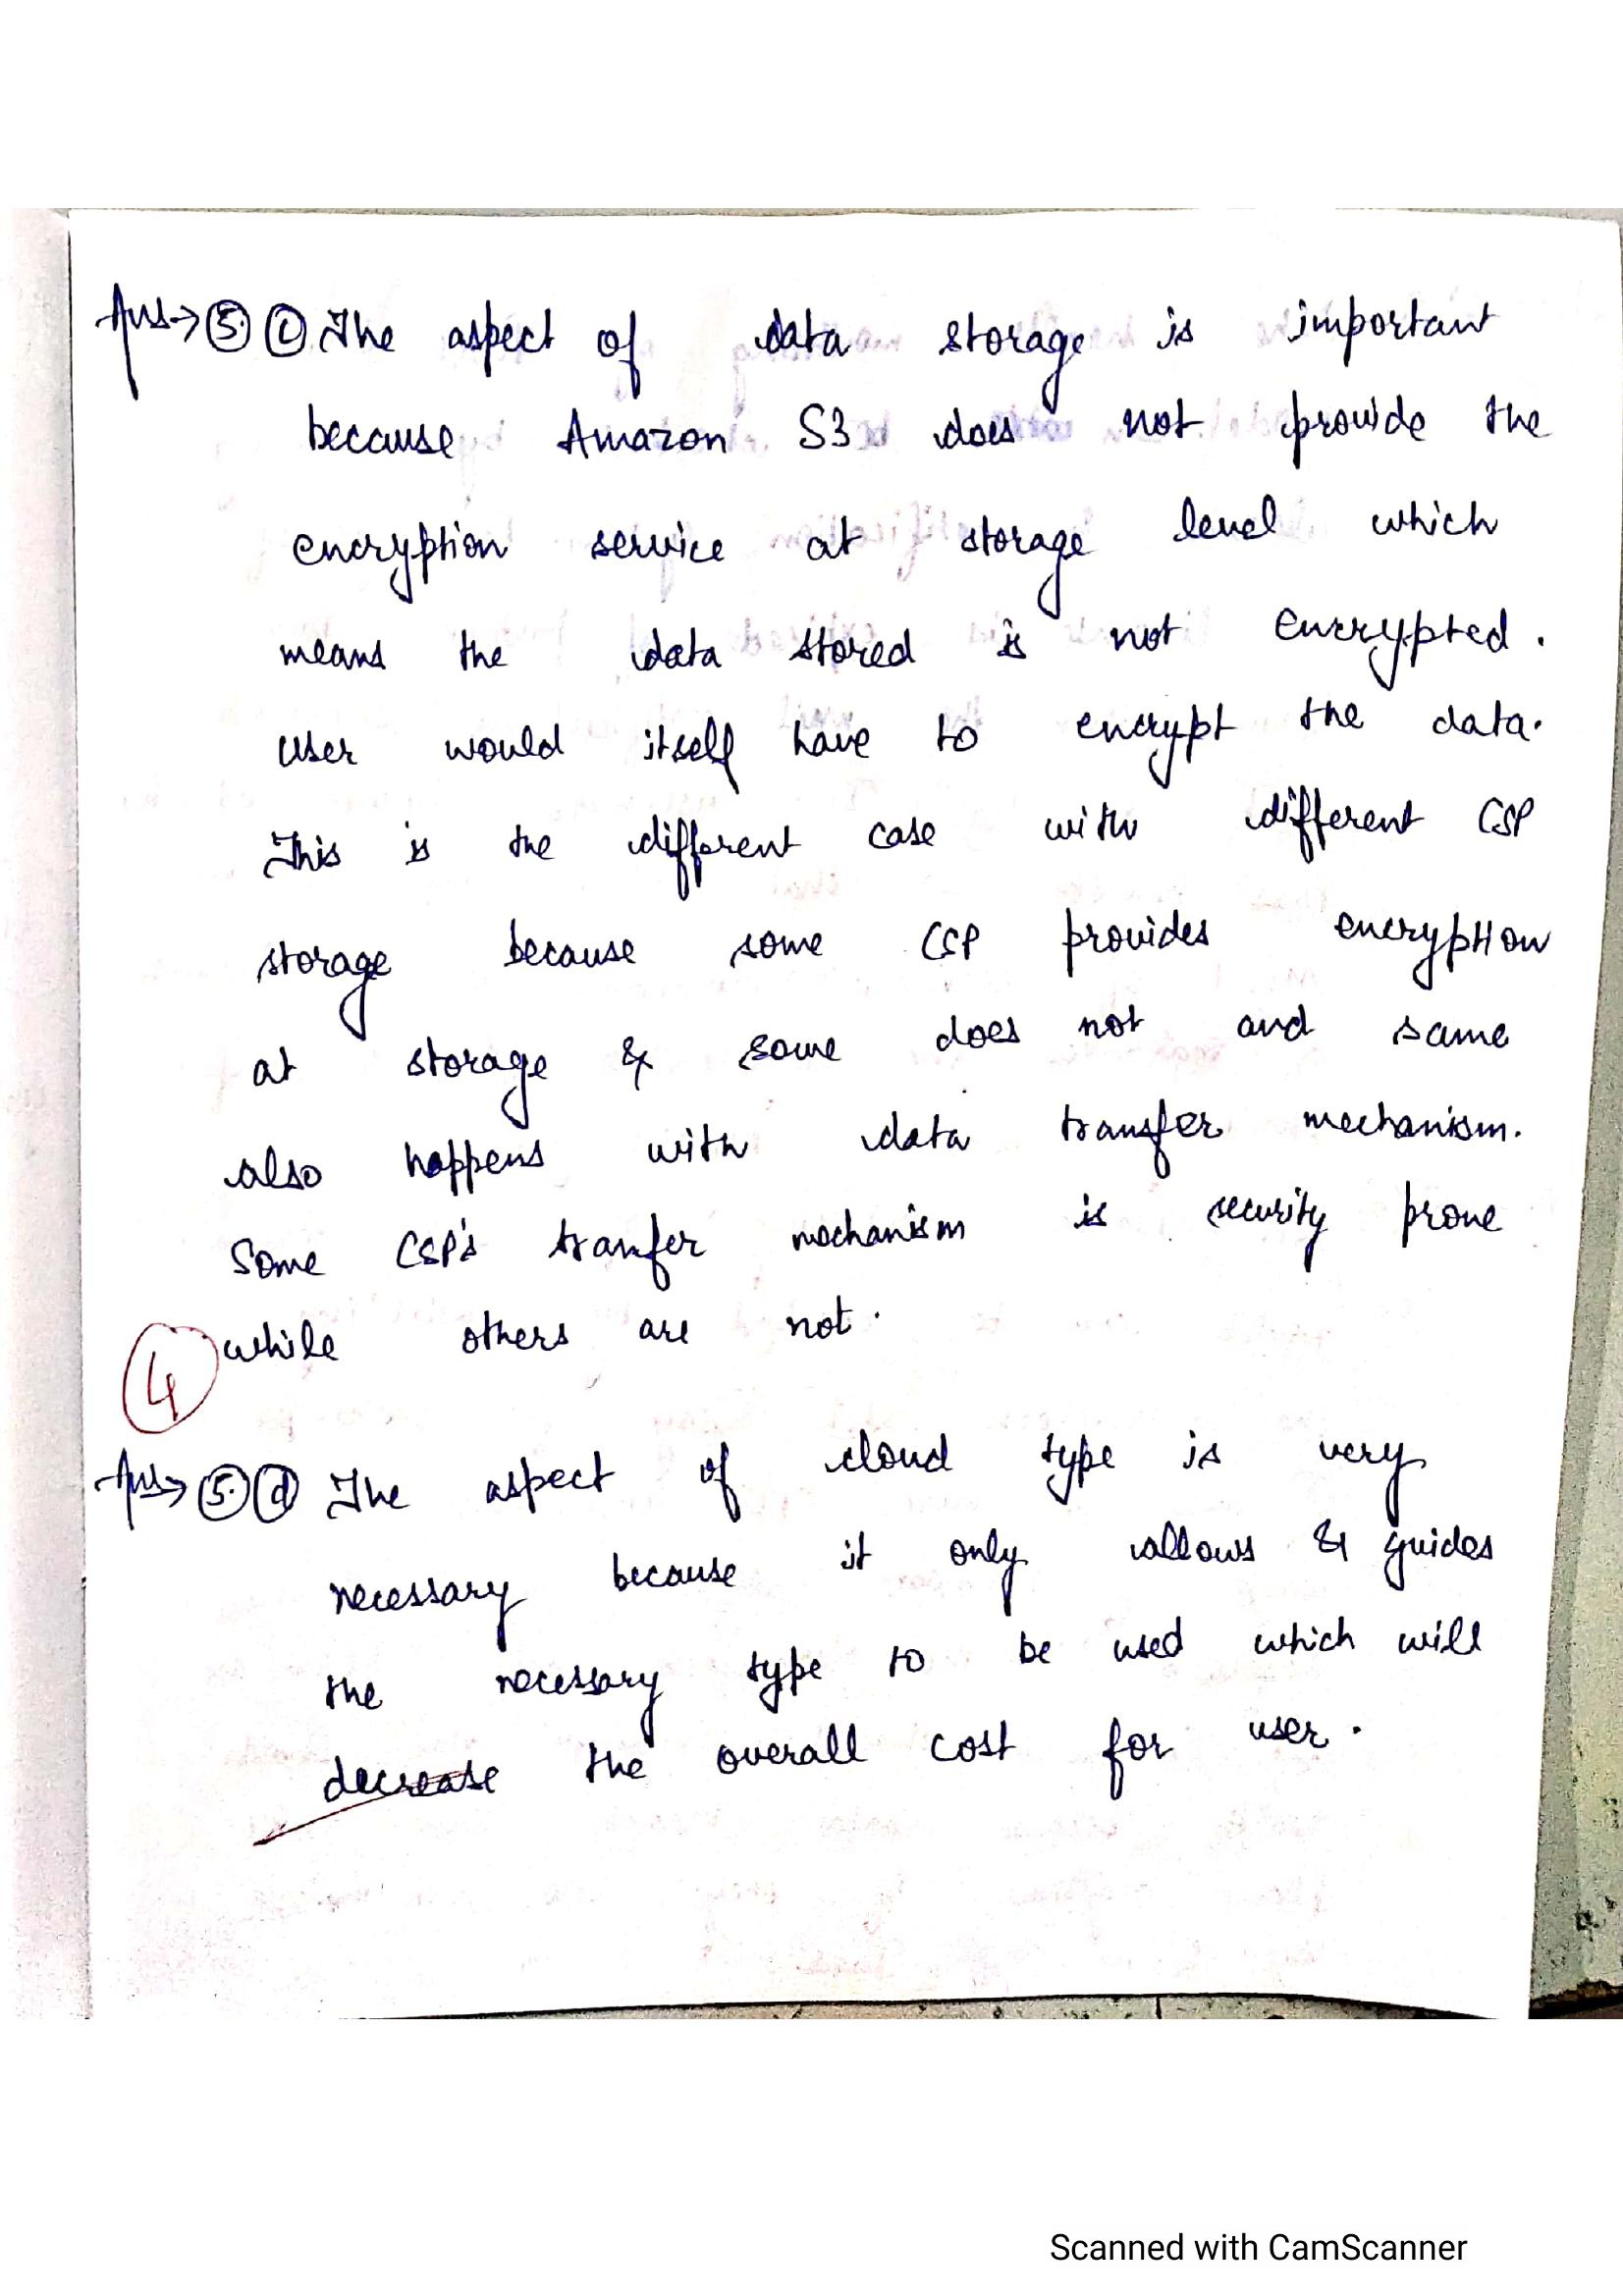 Ans→ 5. c The aspect of data storage is important
because Amazon S3 does not provide the
encryption service at storage level which
means the data stored is not encrypted.
user would itself have to encrypt the data.
This is the different case with different CSP
storage because some CSP provides encryption
at storage & some does not and same
also happens with data transfer mechanism.
Some CSP's tranfer mechanism is security prone
while others are not.
4
Ans→ 5. d The aspect of cloud type is very
necessary because it only allows & guides
the necessary type to be used which will
decrease the overall cost for user.
Scanned with CamScanner